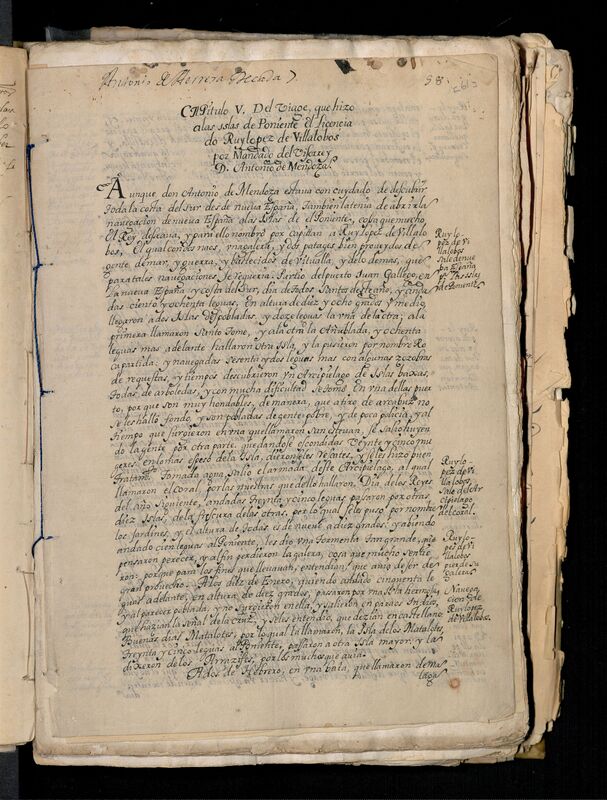 Antonio d Herrera Decada 7
98
Capitulo V. Del Viage, que hizo
alas Islas de Poniente el licencia
do Ruylopez de Villalobos
por Mandado del Visorrey
D. Antonio de Mendoza.
Aunque don Antonio de Mendoza estaua con cuydado de descubrir
toda la costa del Sur desde nueva España, tambien latenia de abrir la
navegacion de nueva España alas Islas de el Poniente, cosa que mucho
El Rey deseaua, y para ello nombró por capitan a Ruylopez de Villalo
bos, El qual con dos naos, una galera, y dos patages bien proueydos de
gente, de mar, y guerra, y bastecidos de Vitualla, y de lo demas, que
para tales navegaciones se requeria: Partio del puerto Juan Gallego, en
la nueva España, y costa del Sur, dia de todos Santos de este año, y anda
das ciento y ochenta leguas, En altura de diez y ocho grados y medio
llegaron a dos Islas despobladas, y doze leguas la una de la otra; ala
primera llamaron Santo Tome, y ala otra la Añublada, y ochenta
leguas mas adelante hallaron otra Isla, y la pusieron por nombre Ro
capartida: y navegadas sesenta y dos leguas mas con algunas zozobras
de requestas, y tiempos descubrieron un Arcipielago de Islas baxas,
todas de arboledas, y con mucha dificultad se tomó En una dellas puer
to, por que son muy hondables, de manera, que a tiro de arcabuz no
se les halló fondo, y son pobladas de gente pobre, y de poca policia, y al
tiempo que surgieron en una que llamaron San Esteuan, se salio huyen
do la gente por otra parte, quedandose escondidas Veynte y cinco mu
geres: en lo mas espeso de la Isla, dieronles rescates, y se les hizo buen
tratamto. Tomada agua Salio el armada deste Arcipielago, al qual
llamaron el Coral, por las muestras que dello hallaron. Dia de los Reyes
del año siguiente, andadas treynta y cinco leguas pasaron por otras
diez Islas, de la frescura de las otras, por lo qual seles puso por nombre
los Jardines, y el altura de todas es de nueue a diez grados: y abiendo
andado cien leguas al Poniente, les dio una tormenta tan grande, que
pensaron perecer, y al fin perdieron la galera, cosa que mucho sentie
ron: porque para los fines que lleuauan, entendian, que auia de ser de
gran prouecho. A los diez de Enero, auiendo andado cinquenta le
guas adelante, en altura de diez grados, pasaron por una Isla hermosa,
y al parecer poblada, y no surgieron en ella, y salieron en paraos Indios,
que hazian la señal de la cruz, y seles entendio, que dezian en castellano
Buenos dias Matalotes, por lo qual la llamaron, la Isla de los Matalotes,
treynta y cinco leguas al Poniente, passaron a otra Isla mayor, y la
dixeron de los Arrazifes, por los muchos que auia.
A dos de Hebrero, en una baia, que llamaron de Ma
laga
Ruylo
pez de Vi
llalobos
sale de nue
va España
pa. las Islas
de Poniente
Ruylo
pez de Vi
llalobos,
sale del Ar
cipielago
del coral.
Ruylo
pez de Vi
llalobos
pierde su
Galera
Navega
cion de
Ruylopez
de Villalobos.